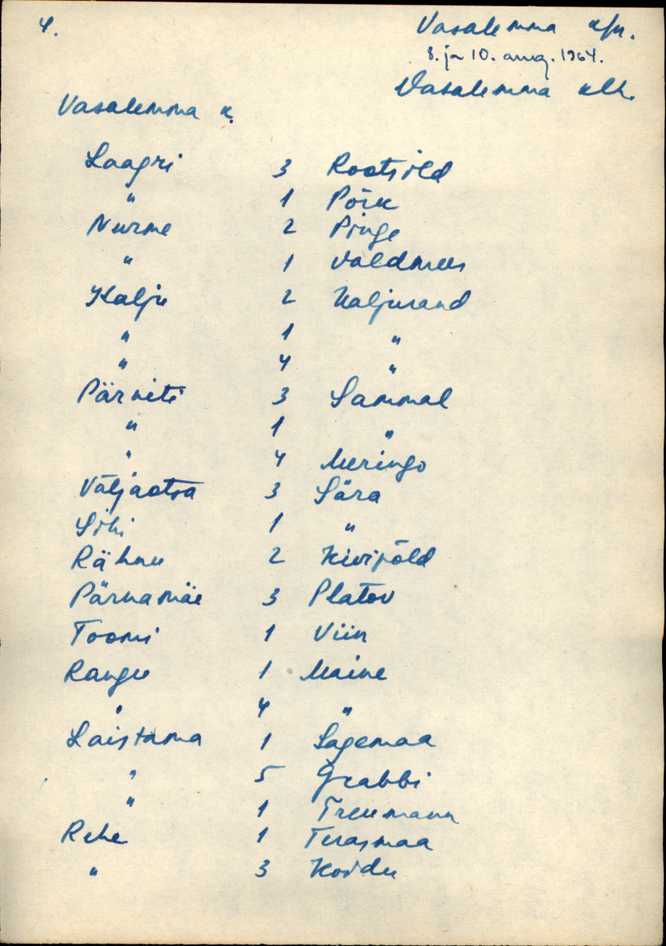 4.
Vasalemma k/n.
8. ja 10. aug. 1964.
Vasalemma alh.
Vasalemma k.
Laagri 3 Rootsild
" 1 Põik
Nurme 2 Pinge
" 1 Valdmees
Kalju 2 Kaljurand
" 1 "
" 4 "
Pärniti 3 Sammal
" 1 "
" 4 Meringo
Väljaotsa 3 Sära
Sihi 1 "
Rähnu 2 Kivipõld
Pärnamäe 3 Platov
Toomi 1 Viin
Rangu 1 Maine
" 4 "
Laistama 1 Sagemaa
" 5 Grabbi
" 1 Treumann
Rehe 1 Terasmaa
" 3 Koidu